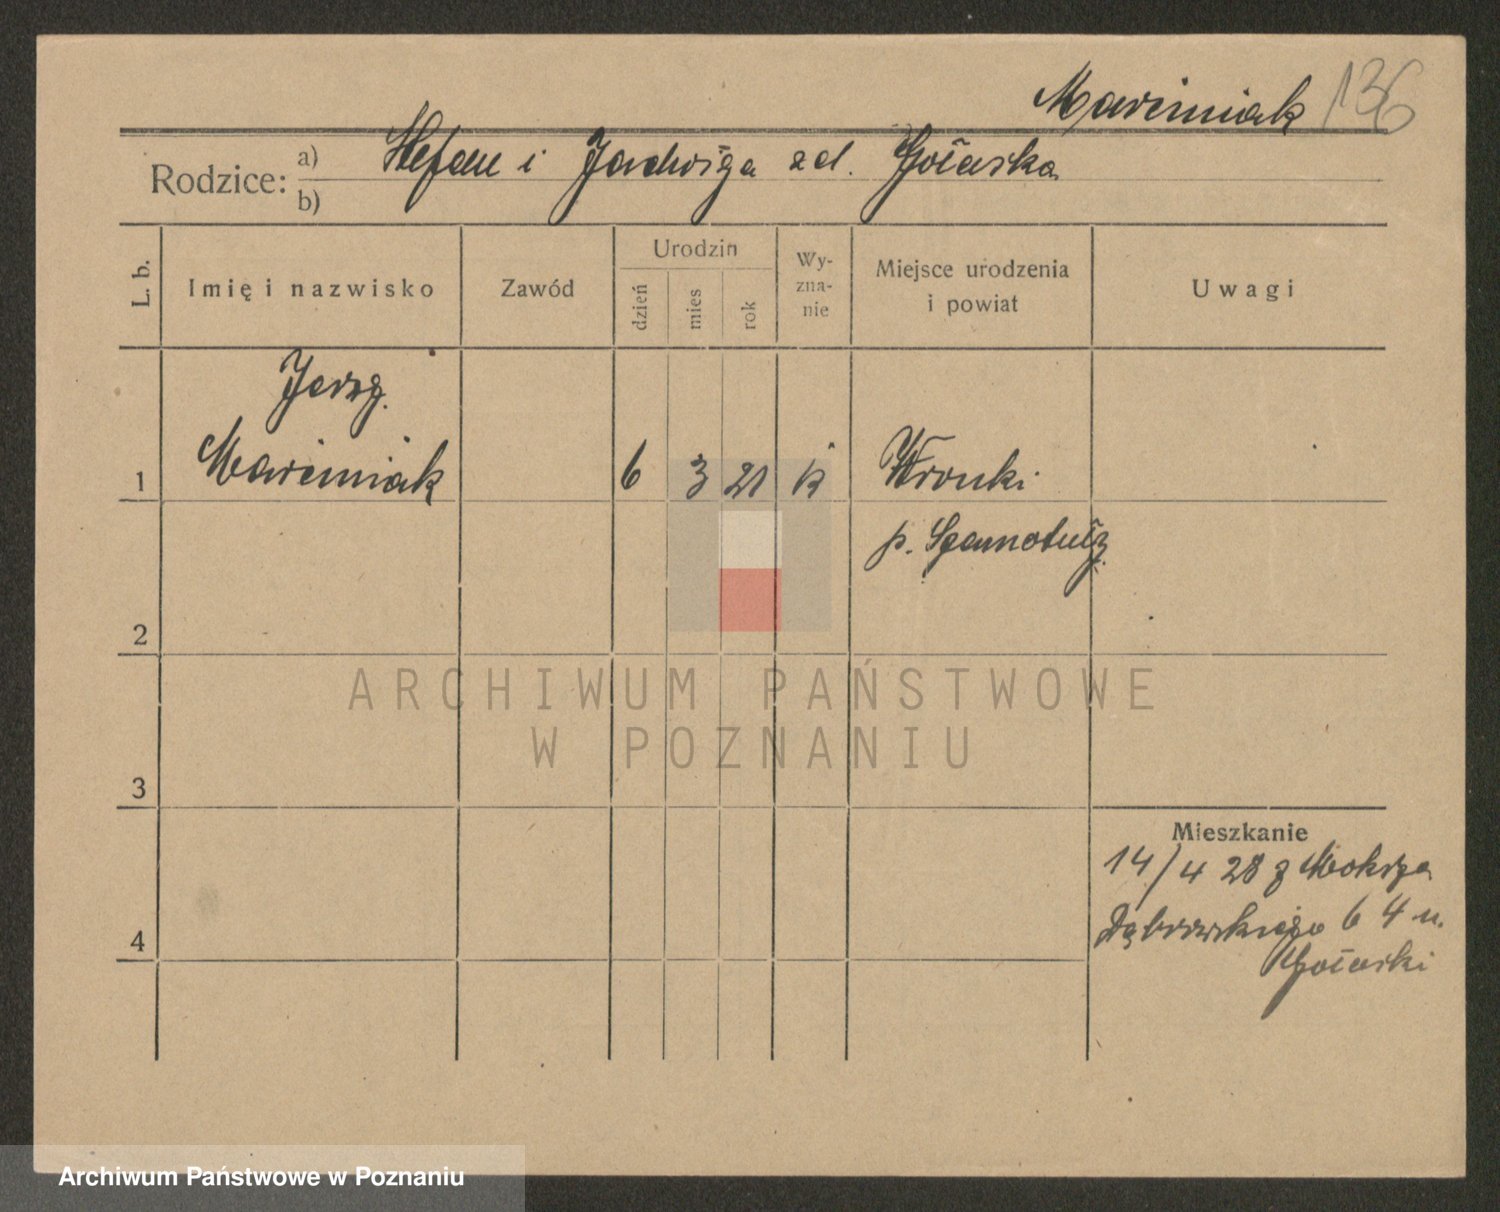 Marciniak 136
Rodzice: a) Stefan i Jadwiga zd. Gołaska
b)
L. b. Imię i nazwisko Zawód Urodzin dzień mies rok Wy-zna-nie Miejsce urodzenia i powiat Uwagi
Jerzy
1 Marciniak 6 3 21 k Wronki
p. Szamotuły
2
3
Mieszkanie
14/4 28 z Mokrza
Dąbrowskiego 6 4 u.
4 Gołaski
ARCHIWUM PAŃSTWOWE
W POZNANIU
Archiwum Państwowe w Poznaniu